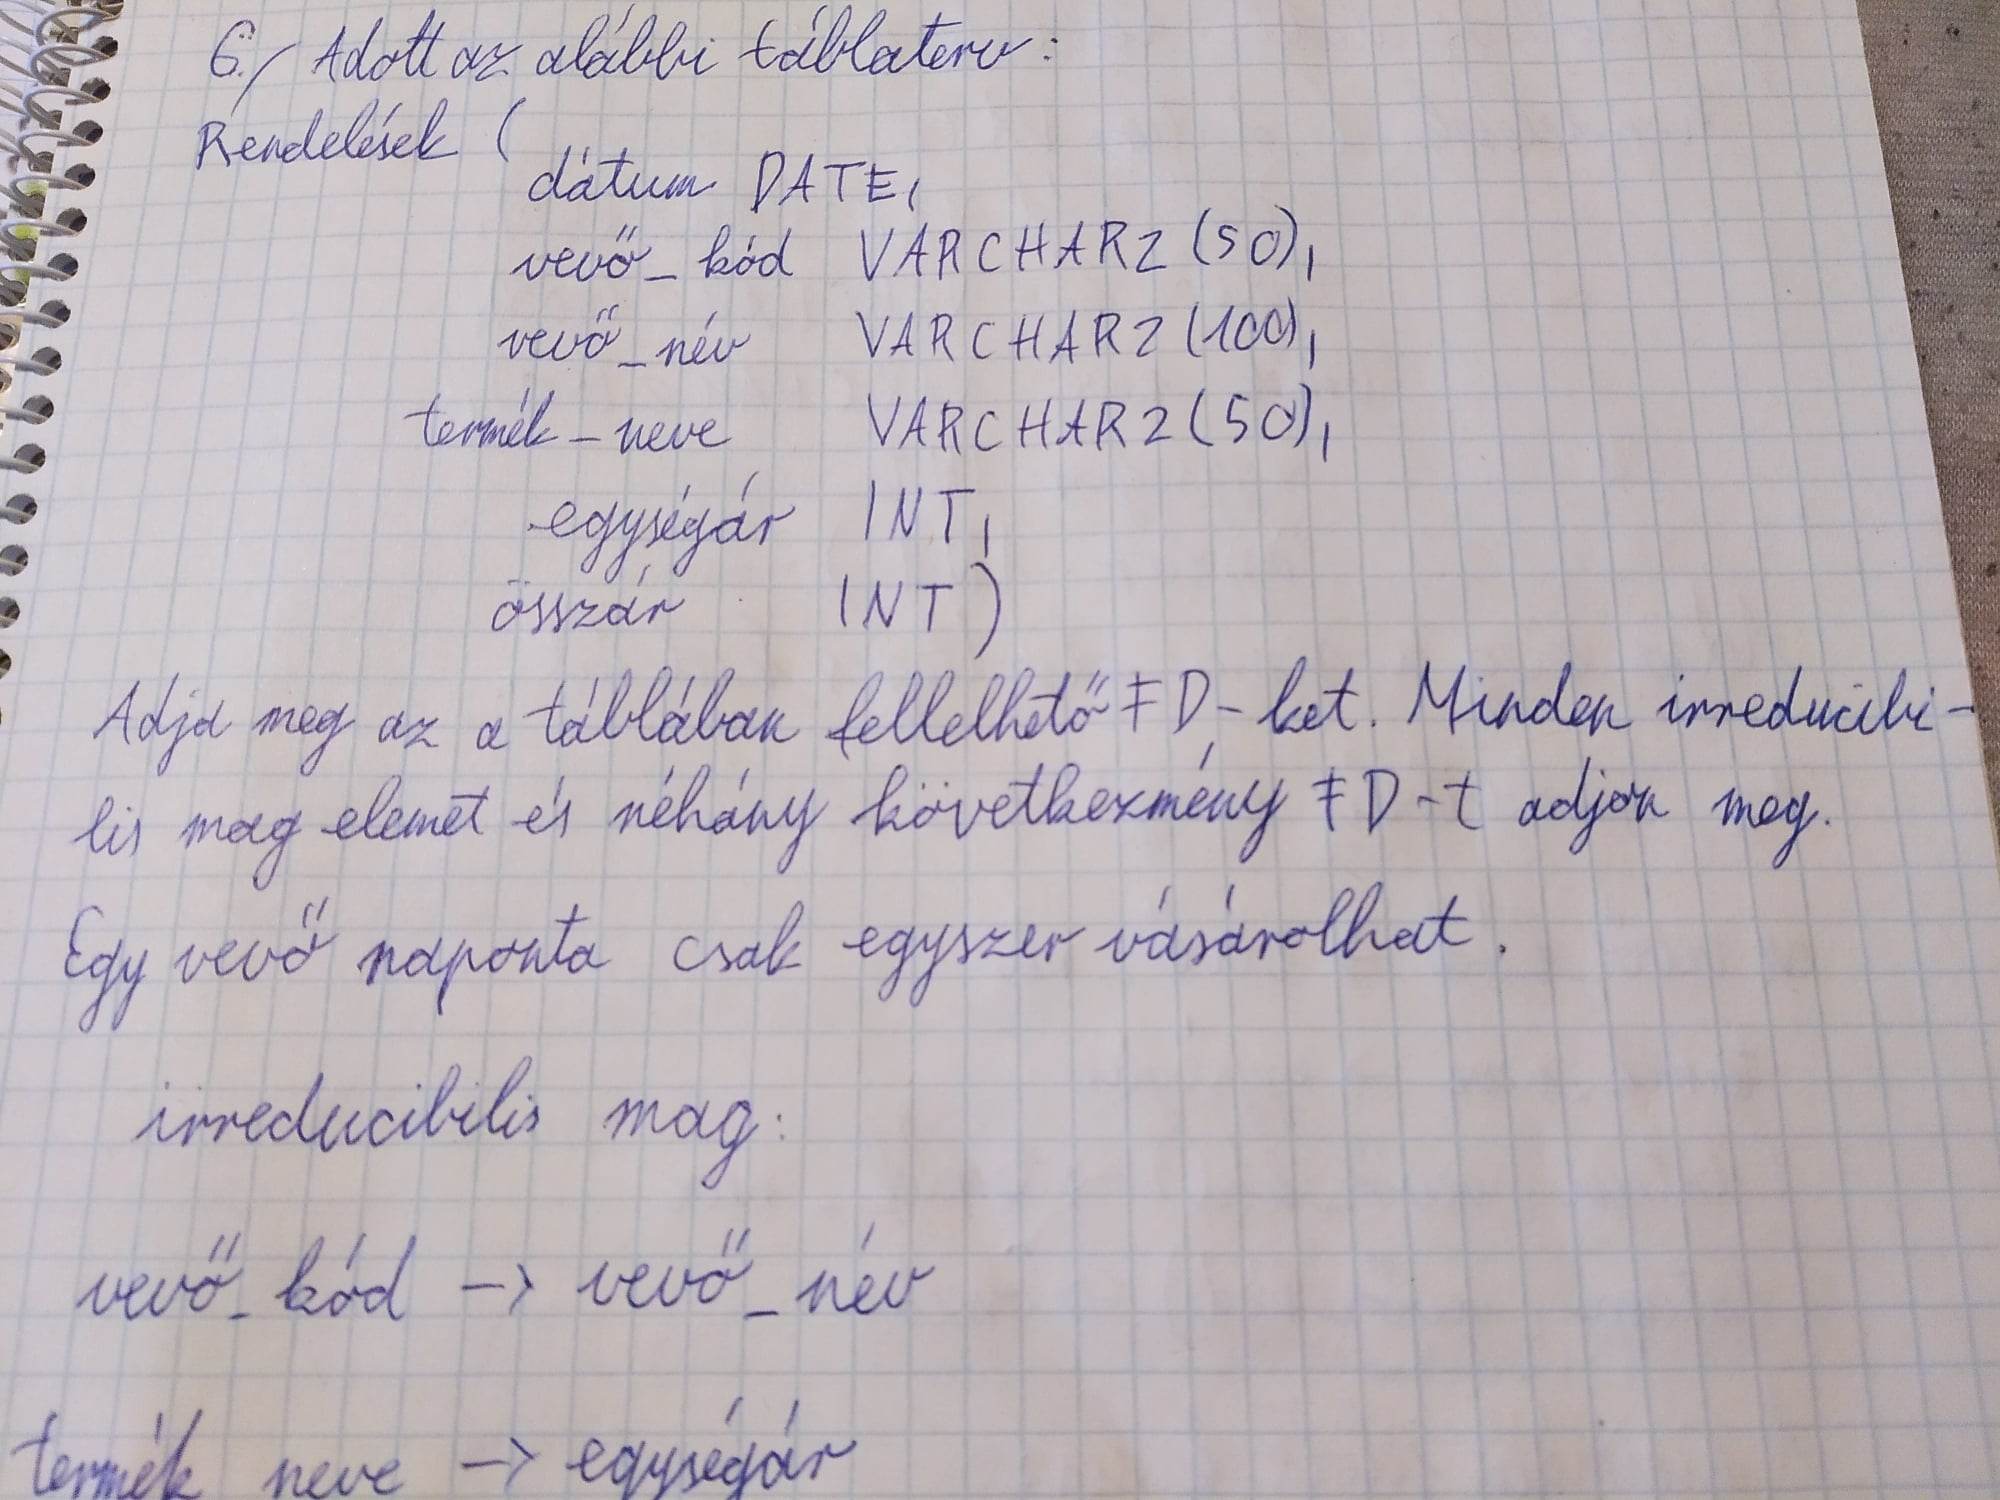 6./ Adott az alábbi táblaterv:
Rendelések (
dátum DATE,
vevő_kód VARCHAR2(50),
vevő_név VARCHAR2(100),
termék_neve VARCHAR2(50),
egységár INT,
összár INT)
Adja meg az a táblában fellelhető FD-ket. Minden irreducibi-
lis mag elemet és néhány következmény FD-t adjon meg.
Egy vevő naponta csak egyszer vásárolhat.
irreducibilis mag:
vevő_kód -> vevő_név
termék neve -> egységár